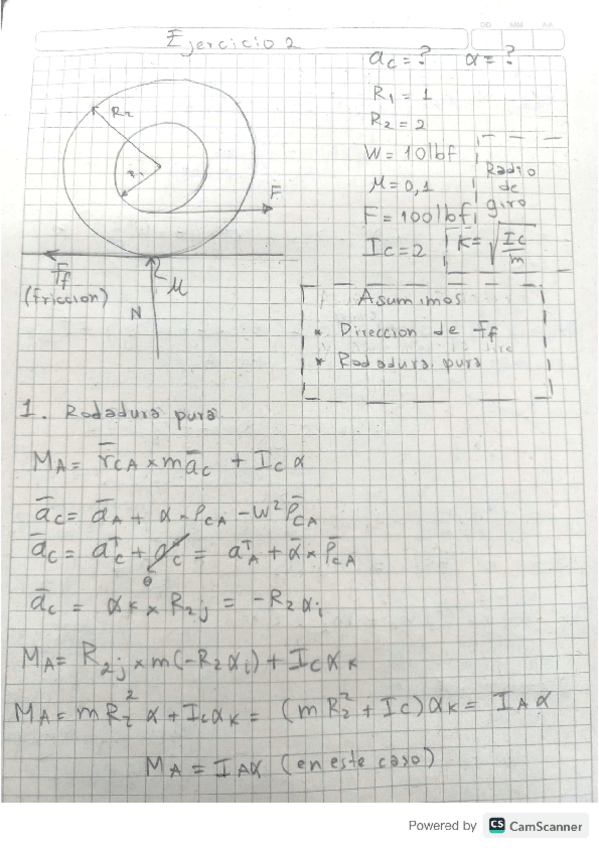 Ejercicio 2
DD MM AA
ac = ? α = ?
R1 = 1
R2 = 2
W = 10lbf
μ = 0,1
F = 100lbf
Ic = 2
Radio
de
giro
K = √Ic/m
R2
R1
F
Ff
(friccion)
N
μ
Asumimos
* Direccion de Ff
* Rodadura pura
1. Rodadura pura
MA = r̄CA × m āc + Ic α
āc = āA + α × ρCA - W² ρ̄CA
āc = aᵀc + aⁿc = aᵀA + ᾱ × ρ̄CA
0
āc = αK × R2j = -R2 αi
MA = R2j × m(-R2 αi) + Ic αK
MA = m R2² α + Ic αK = (m R2² + Ic) αK = IA α
MA = IAα (en este caso)
Powered by CS CamScanner